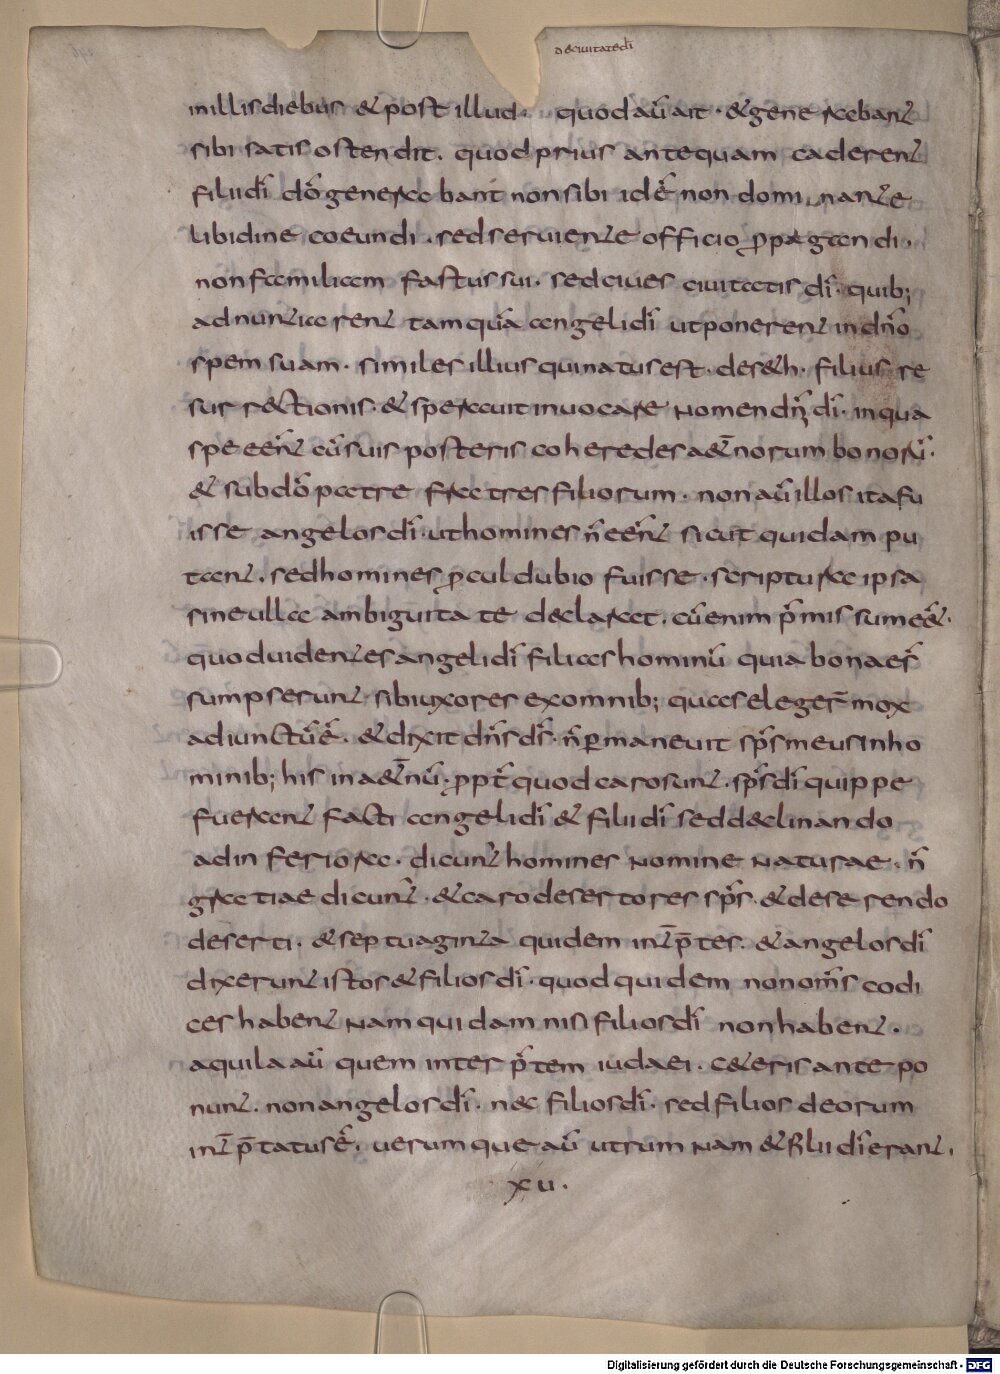 De civitate dī
in illis diebus & post illud. quod aū ait. & generabant
sibi satis ostendit. quod prius antequam caderent
filii dī dō generabant non sibi id ē non dominante
libidine coeundi. sed serviente officio ppagandi.
non familiam fastus sui. sed cives civitatis dī. quib;
adnuntiarent tamquā angeli dī ut ponerent in dn̄o
spem suam. similes illius qui natus est. de seth. filius re
surrectionis. & speravit invocare nomen dn̄i dī. in qua
spe eēnt cū suis posteris coheredes aet̄norum bonorū.
& sub dō patre fratres filiorum. non aū illos ita fu
isse angelos dī. ut homines n̄ eēnt sicut quidam pu
tant. sed homines pcul dubio fuisse. scriptura ipsa
sine ulla ambiguitate declarat. cū enim p̄missum eēt.
quod videntes angeli dī filias hominū quia bonae s̄
sumpserunt sibi uxores ex omnib; quas eleger̄ mox
adiunctū ē. & dixit dn̄s ds̄. n̄ pmanevit sp̄s meus in ho
minib; his in aet̄nū. ppt̄ quod caro sunt. sp̄s dī quippe
fuerant facti angeli dī & filii dī sed declinando
ad inferiora. dicunt̄ homines nomine naturae. n̄
gratiae dicunt̄. & caro desertores sp̄s. & deserendo
deserti. & septuaginta quidem int̄p̄tes. & angelos dī
dixerunt istos & filios dī. quod quidem non om̄s codi
ces habent nam quidam nisi filios dī non habent.
aquila aū quem interp̄tem iudaei. c&eris antepo
nunt. non angelos dī. nec filios dī. sed filios deorum
int̄p̄tatus ē. verumque aū utrum nam & filii dī erant.
xv.
Digitalisierung gefördert durch die Deutsche Forschungsgemeinschaft - DFG